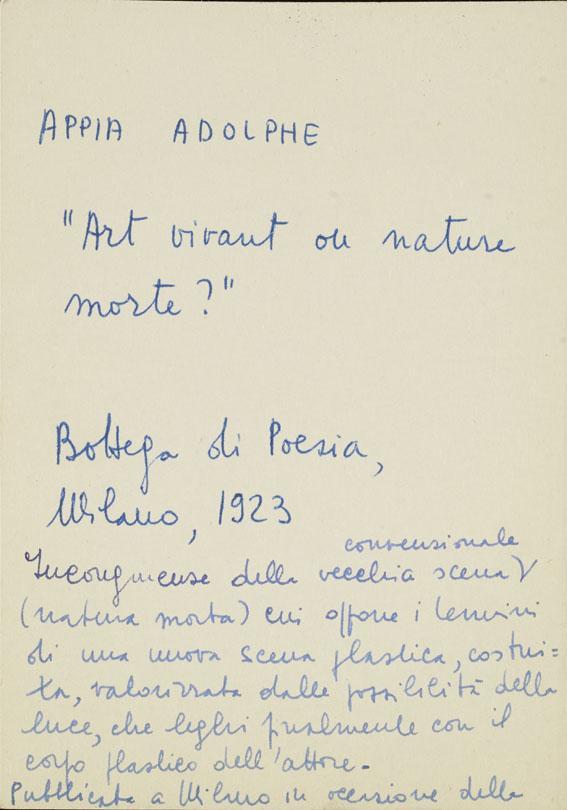 APPIA ADOLPHE
"Art vivant ou nature
morte?"
Bottega di Poesia,
Milano, 1923
convensionale
Incongruense della vecchia scena √
(natura morta) cui oppone i termini
di una nuova scena plastica, costrui=
ta, valorizzata dalle possibilità della
luce, che leghi finalmente con il
corpo plastico dell'attore.-
Pubblicata a Milano in occasione della